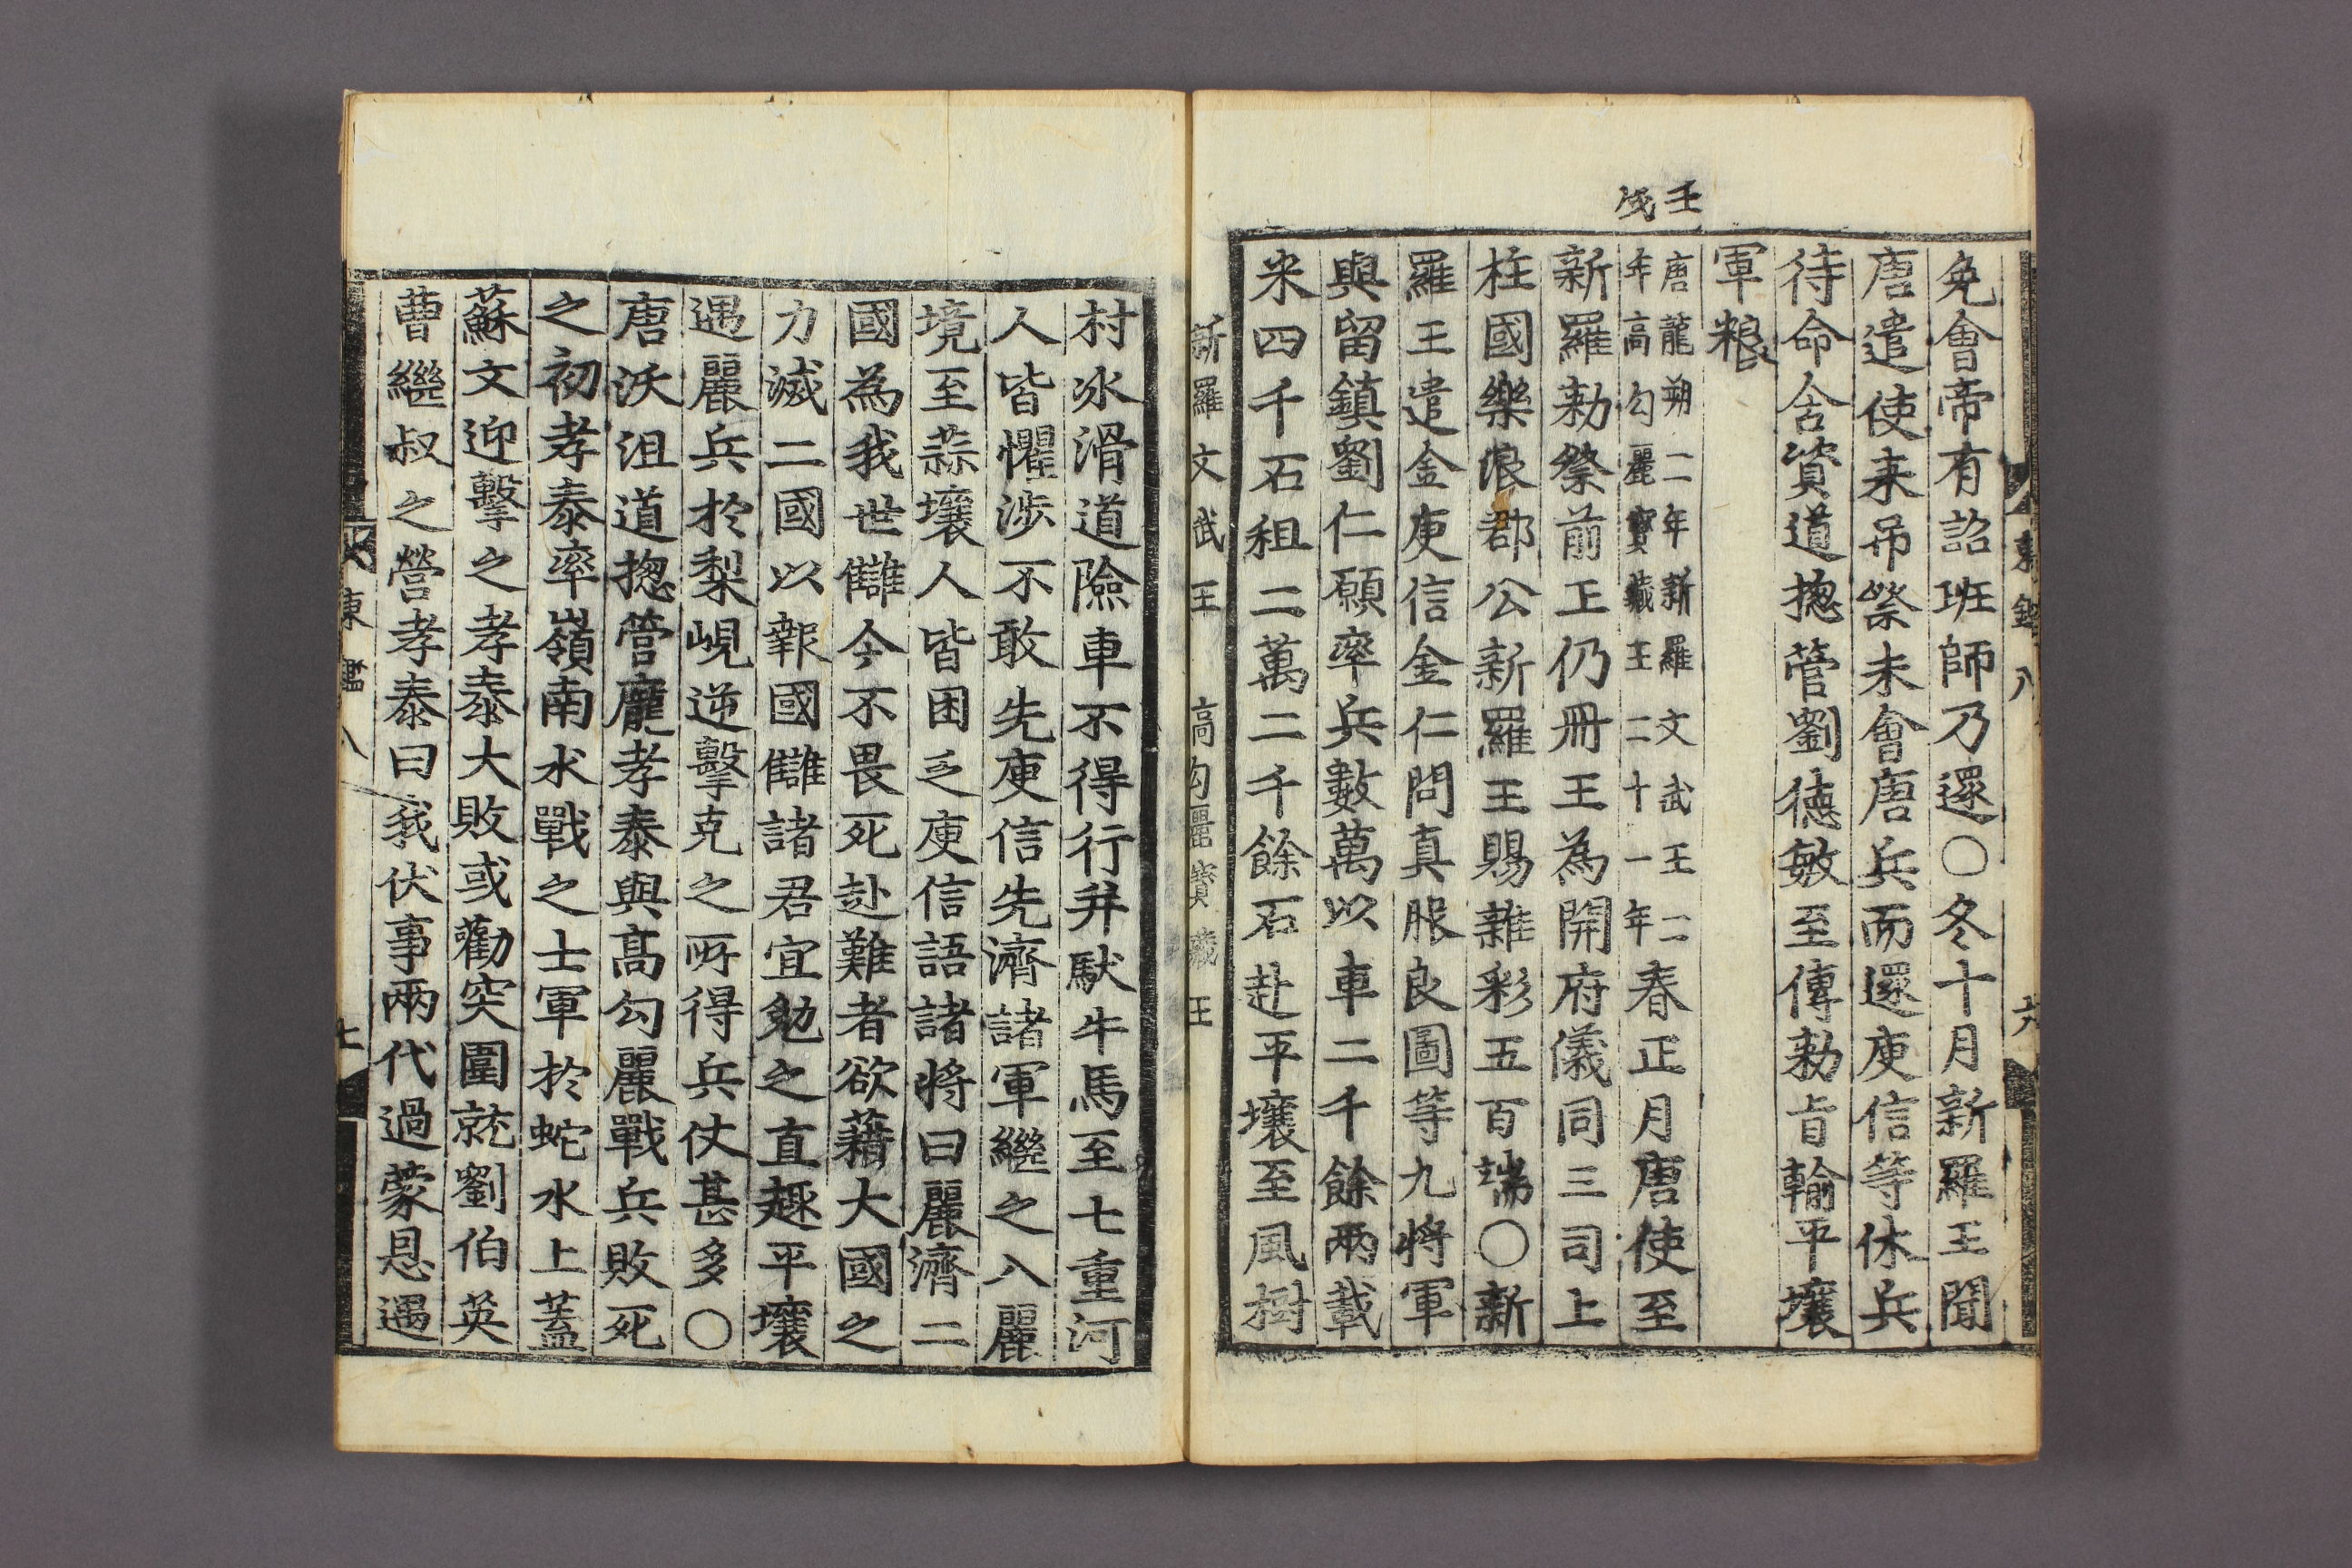 免會帝有詔班師乃還○冬十月新羅王聞
唐遣使来吊祭未會唐兵而還庾信等休兵
待命含資道摠管劉德敏至傳勑旨輸平壤
軍粮
壬戌
唐龍朔二年新羅文武王二
年高句麗寶藏王二十一年
春正月唐使至
新羅勑祭前王仍冊王為開府儀同三司上
柱國樂浪郡公新羅王賜雜彩五百端○新
羅王遣金庾信金仁問真服良圖等九將軍
與留鎮劉仁願率兵數萬以車二千餘兩載
米四千石租二萬二千餘石赴平壤至風樹
新羅文武王 高句麗寶藏王
村冰滑道險車不得行并馱牛馬至七重河
人皆懼涉不敢先庾信先濟諸軍繼之入麗
境至蒜壤人皆困乏庾信語諸將曰麗濟二
國為我世讎今不畏死赴難者欲藉大國之
力滅二國以報國讎諸君宜勉之直趍平壤
遇麗兵於梨峴逆擊克之所得兵仗甚多○
唐沃沮道摠管龐孝泰與高句麗戰兵敗死
之初孝泰率嶺南水戰之士軍於蛇水上蓋
蘇文迎擊之孝泰大敗或勸突圍就劉伯英
曹繼叔之營孝泰曰我伏事兩代過蒙恩遇
東鑑八
七